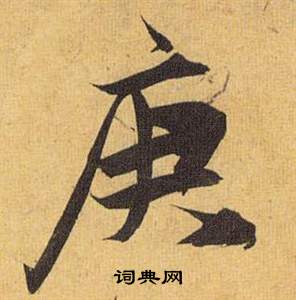 庚
词典网